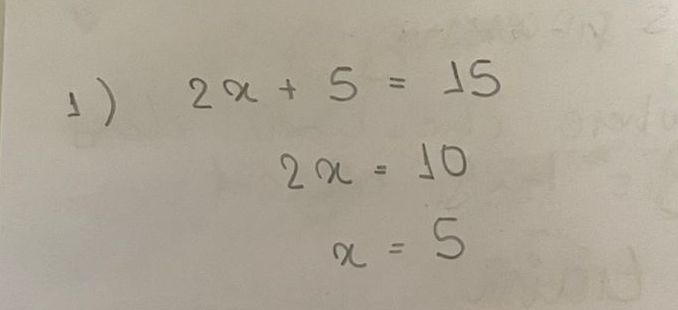 1) 2x + 5 = 15
2x = 10
x = 5